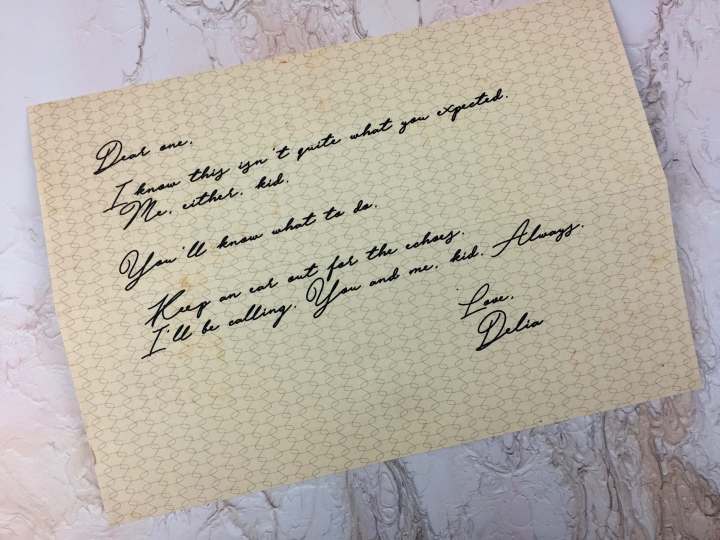 Dear one,
I know this isn't quite what you expected.
Me, either, kid.
You'll know what to do.
Keep an ear out for the echoes.
I'll be calling. You and me, kid. Always.
Love,
Delia